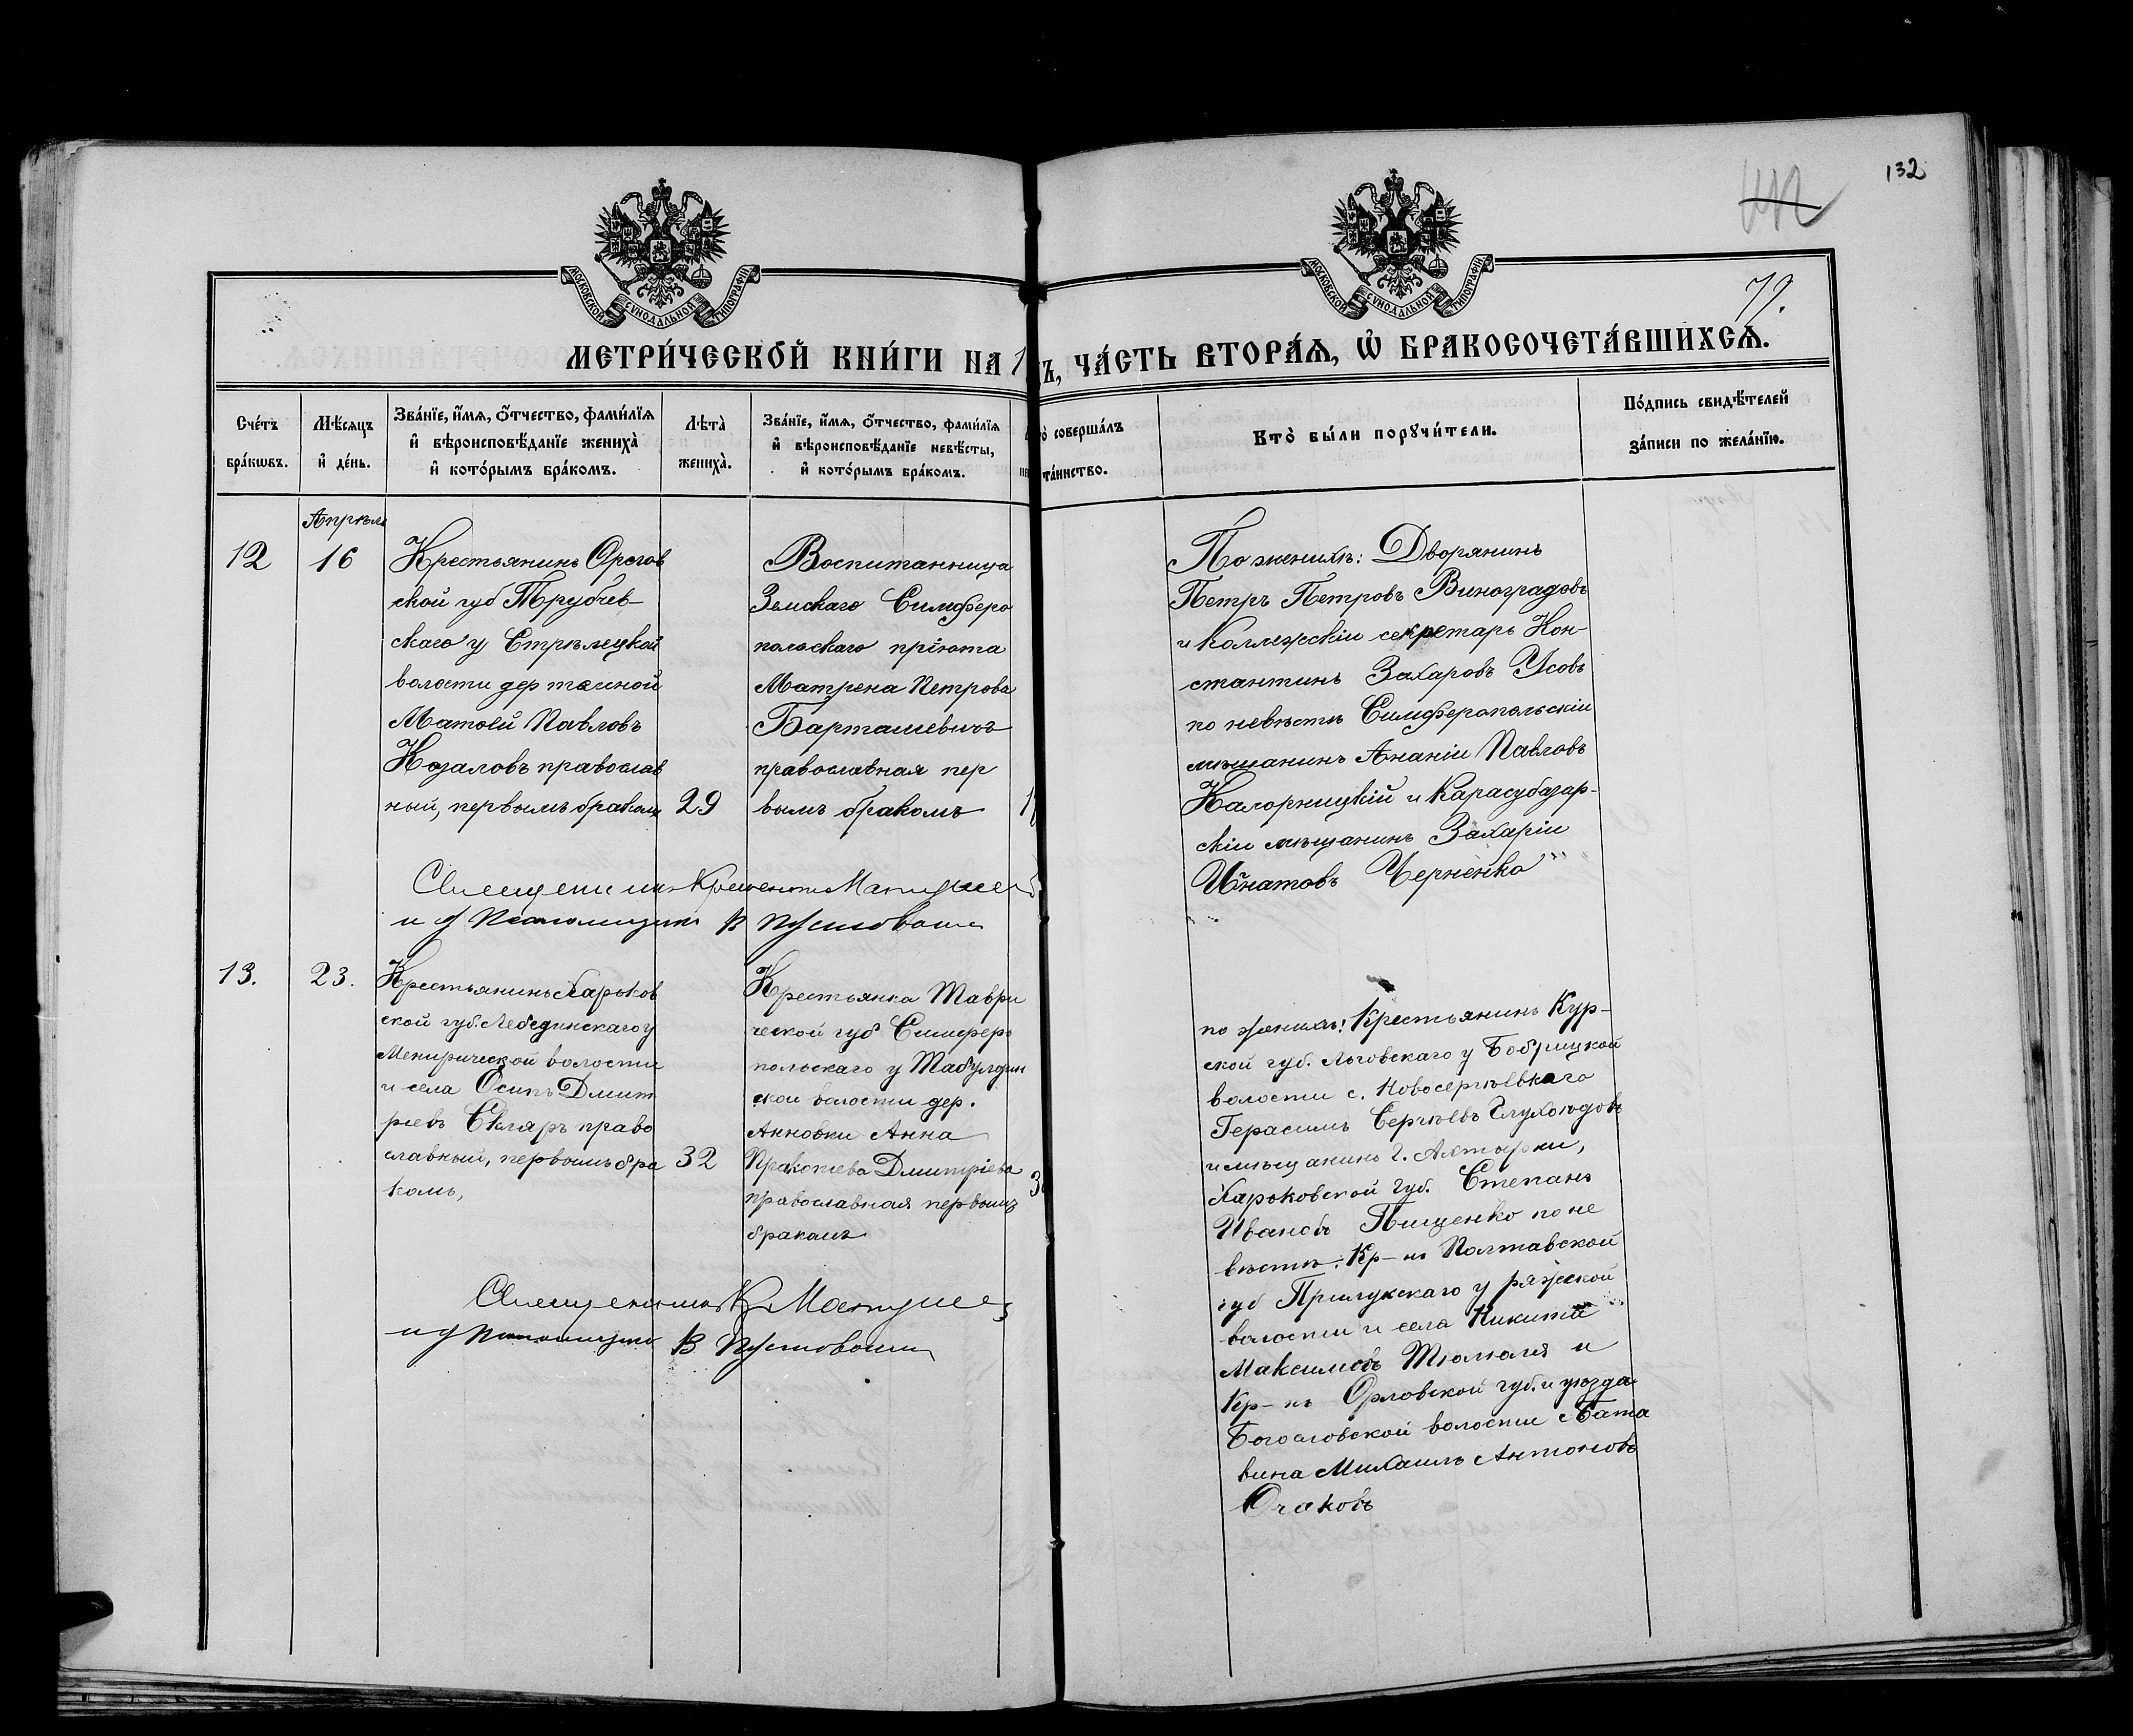 132
79.
МОСКОВСКОЙ СѴНОДАЛЬНОЙ ТИПОГРАФІИ
МОСКОВСКОЙ СѴНОДАЛЬНОЙ ТИПОГРАФІИ
МЕТРИ́ЧЕСКОЙ КНИ́ГИ НА 1
Ъ, ЧА́СТЬ ВТОРА́Ѧ, Ѡ҆ БРАКОСОЧЕТА́ВШИХСѦ.
Сче́тъ
бра́кѡвъ.
Мѣ́сяцъ
и҆ де́нь.
Зва́нїе, и҆́мѧ, ѻ҆́тчество, фами́лїѧ
и҆ вѣроисповѣ́данїе жениха̀
и҆ кото́рымъ бра́комъ.
Лѣта̀
жениха̀.
Зва́нїе, и҆́мѧ, ѻ҆́тчество, фами́лїѧ
и҆ вѣроисповѣ́данїе невѣ́сты,
и҆ кото́рымъ бра́комъ.
то̀ соверша́лъ
та́инство.
Кто̀ бы́ли порꙋчи́тели.
По́дпись свидѣ́телей
за́писи по жела́нїю.
Апрѣль
12
16
Крестьянинъ Орлов
ской губ Трубчев-
скаго у Стрѣлецкой
волости дер
Матѳей Павловъ
Козаловъ православ
ный, первымъ бракомъ
29
Воспитанница
Земскаго Симферо
польскаго пріюта
Матрена Петрова
Барташевичъ
православная пер
вымъ бракомъ
1
По женихѣ: Дворянинъ
Петръ Петровъ Виноградовъ
и Коллежскій секретарь Кон-
стантинъ Захаровъ Усовъ
по невѣстѣ Симферопольскій
мѣщанинъ Ананій Павловъ
Калорницкій и Карасубазар-
скій мѣщанинъ Захарій
Игнатовъ Черненко
Священникъ
и д Псаломщика В
13.
23.
Крестьянинъ Харьков
ской губ. Лебединскаго у
волости
и села Осипъ Дмит
ріевъ Скляръ право
славный, первымъ бра
комъ,
32
Крестьянка Таври
ческой губ Симферо
польскаго у Табулдин
ской волости дер.
Анновки Анна
Пракопіева Дмитріева
православная первымъ
бракомъ
3
по женихѣ: Крестьянинъ Кур-
ской губ. Льговскаго у
волости с. Новосергѣевкаго
Герасимъ Сергѣевъ Глухоѣдовъ
и мѣщанинъ г. Ахтырки,
Харьковской Губ. Степанъ
Ивановъ Пищенко по не
вѣстѣ: Кр-нъ Полтавской
губ Прилукскаго у ряжской
волости и села Никита
Максимовъ Тюлюля и
Кр-нъ Орловской губ. и уѣзда
Богословской волости
вина Михаилъ Антоновъ
Очаковъ
Священникъ К
и д Псаломщика В